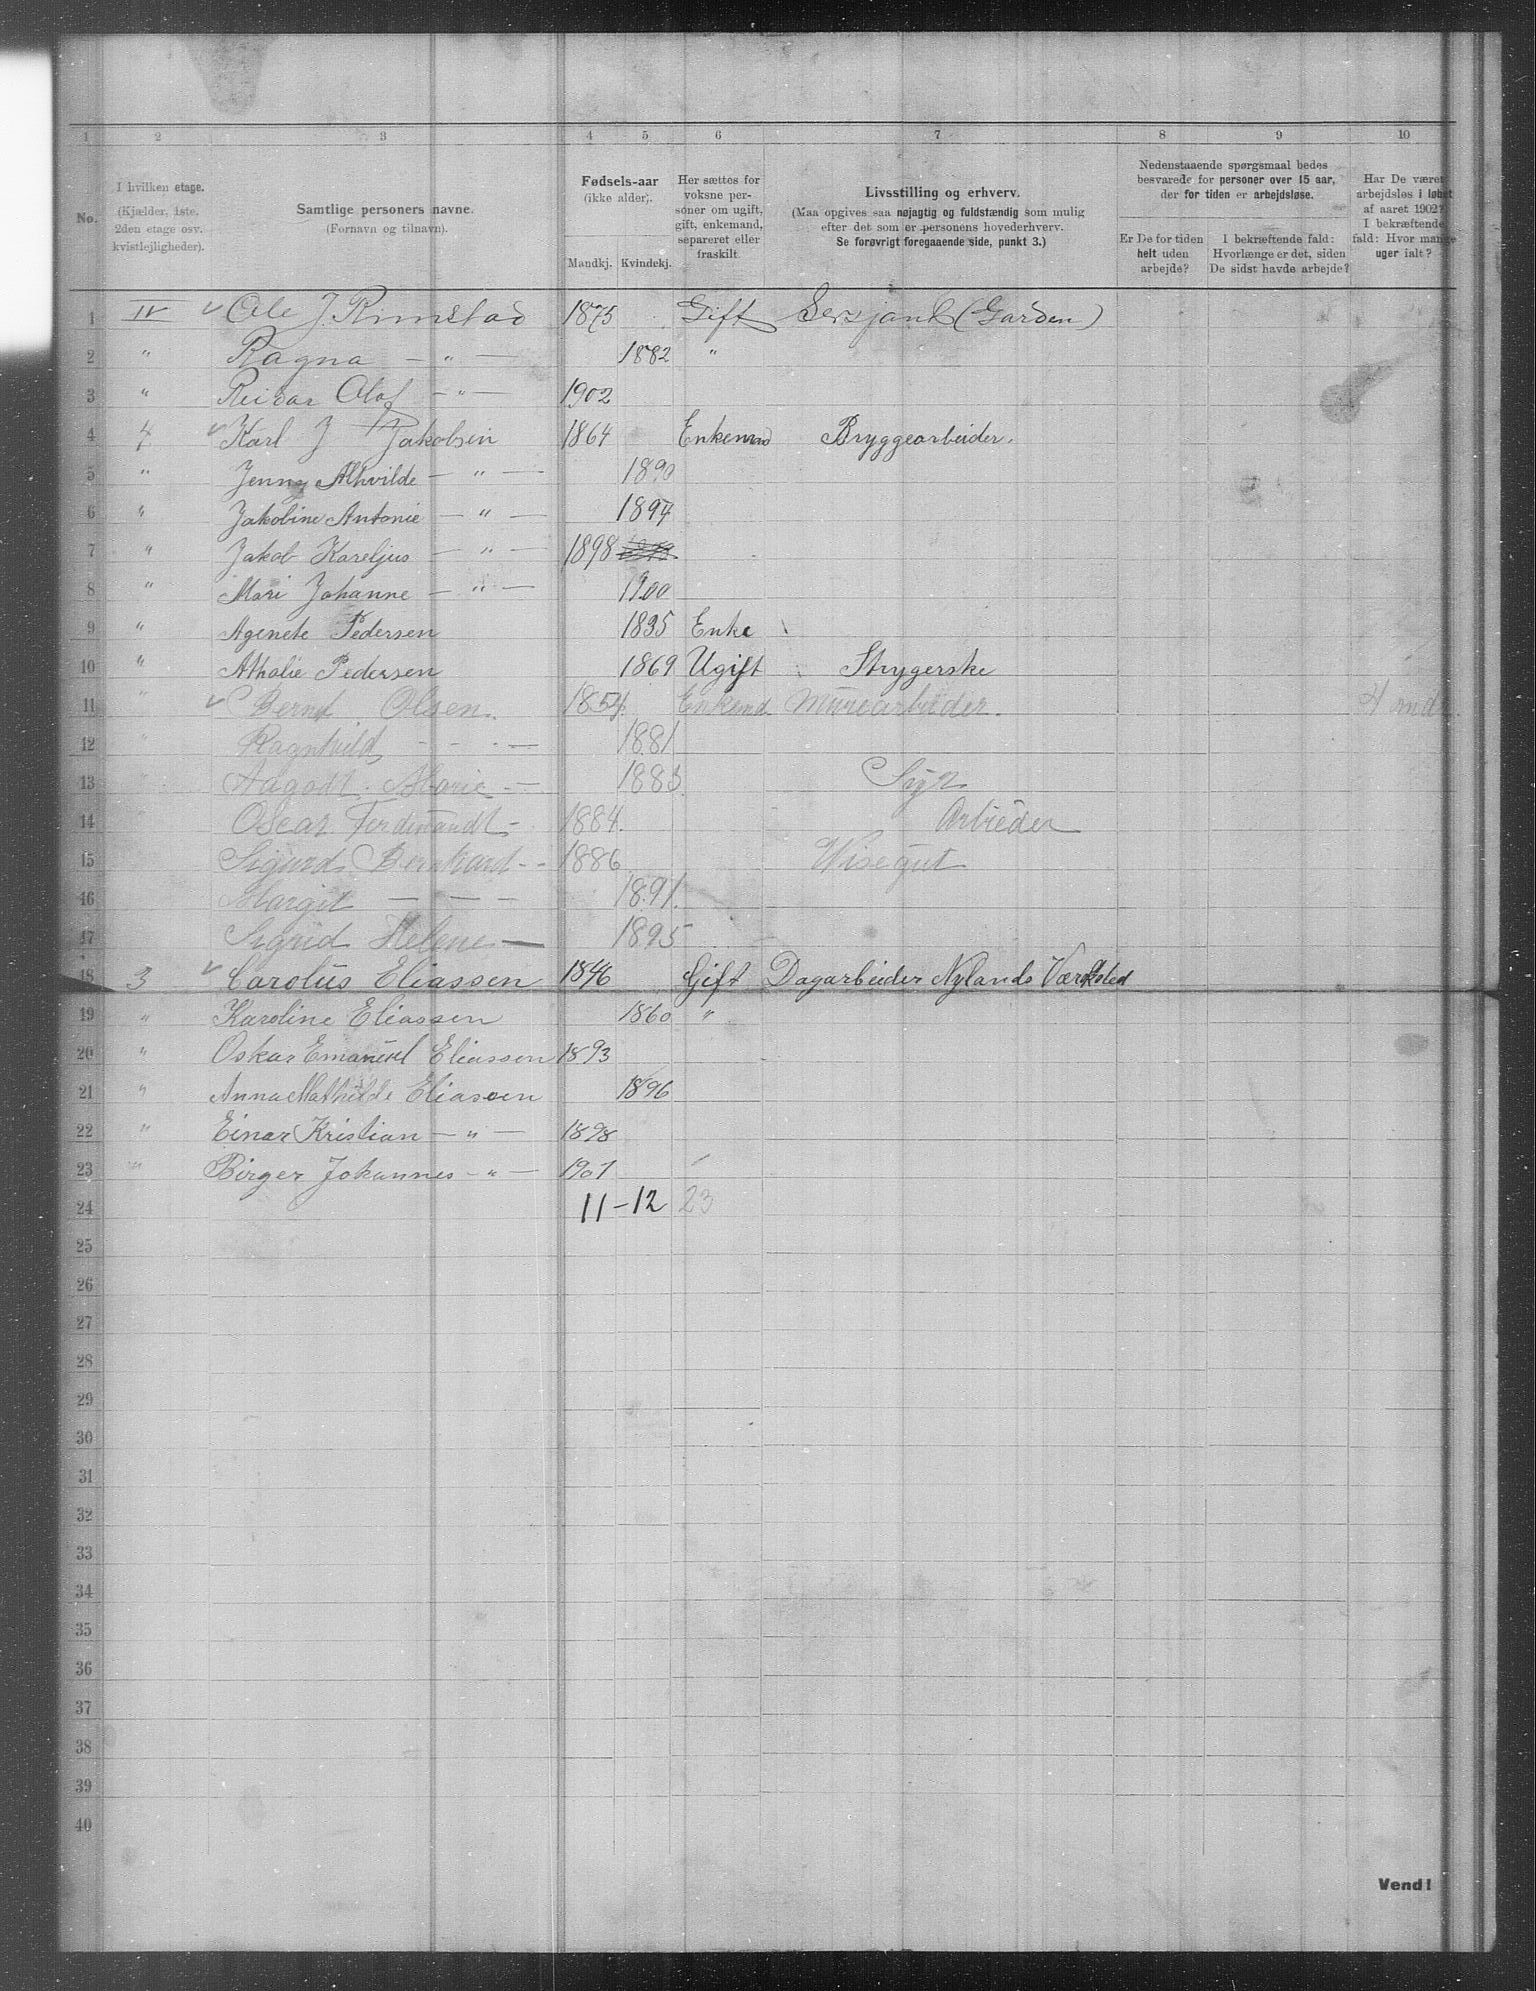 1 2 3 4 5 6 7 8 9 10
No.
I hvilken etage.
(Kjælder, 1ste,
2den etage osv.
kvistlejligheder).
Samtlige personers navne.
(Fornavn og tilnavn).
Fødsels-aar
(ikke alder).
Mandkj. Kvindekj.
Her sættes for
voksne per-
soner om ugift,
gift, enkemand,
separeret eller
fraskilt.
Livsstilling og erhverv.
(Maa opgives saa nøjagtig og fuldstændig som mulig
efter det som er personens hovederhverv.
Se forøvrigt foregaaende side, punkt 3.)
Nedenstaaende spørgsmaal bedes
besvarede for personer over 15 aar,
der for tiden er arbejdsløse.
Er De for tiden
helt uden
arbejde?
I bekræftende fald:
Hvorlænge er det, siden
De sidst havde arbejde?
Har De været
arbejdsløs i løbet
af aaret 1902?
I bekræftende
fald: Hvor mange
uger ialt?
1 IV Ole J. Rimstad 1875 Gift Sersjant (Garden)
2 " Ragna — " — 1882 "
3 " Reidar Olaf — " — 1902
4 4 Karl J Jakobsen 1864 Enkemnd Bryggearbeider.
5 " Jenny Alhvilde — " — 1890
6 " Jakobine Antonie — " — 1894
7 " Jakob Kareljus — " — 1898
8 " Mari Johanne — " — 1900
9 " Agenete Pedersen 1835 Enke
10 " Athalie Pedersen 1869 Ugift Strygerske
11 " Bernt Olsen. 1854. Enkemd Murearbieder. 4
12 " Ragnhild - - - 1881
13 " Aagodt. Marie - 1883. Syr
14 " Oscar Ferdinandt - 1884. Arbieder
15 Sigurd Bernhard - - 1886 Visegut
16 Margit — — - 1891.
17 Sigrid Helene — 1895
18 3 Carolus Eliassen 1846 Gift Dagarbeider Nylands Værksted
19 " Karoline Eliassen 1860 "
20 " Oskar Emanuel Eliassen 1893
21 " Anna Mathilde Eliassen 1896
22 " Einar Kristian — " — 1898
23 " Birger Johannes - " — 1901
24 11 - 12 23
25
26
27
28
29
30
31
32
33
34
35
36
37
38
39
40
Vend!